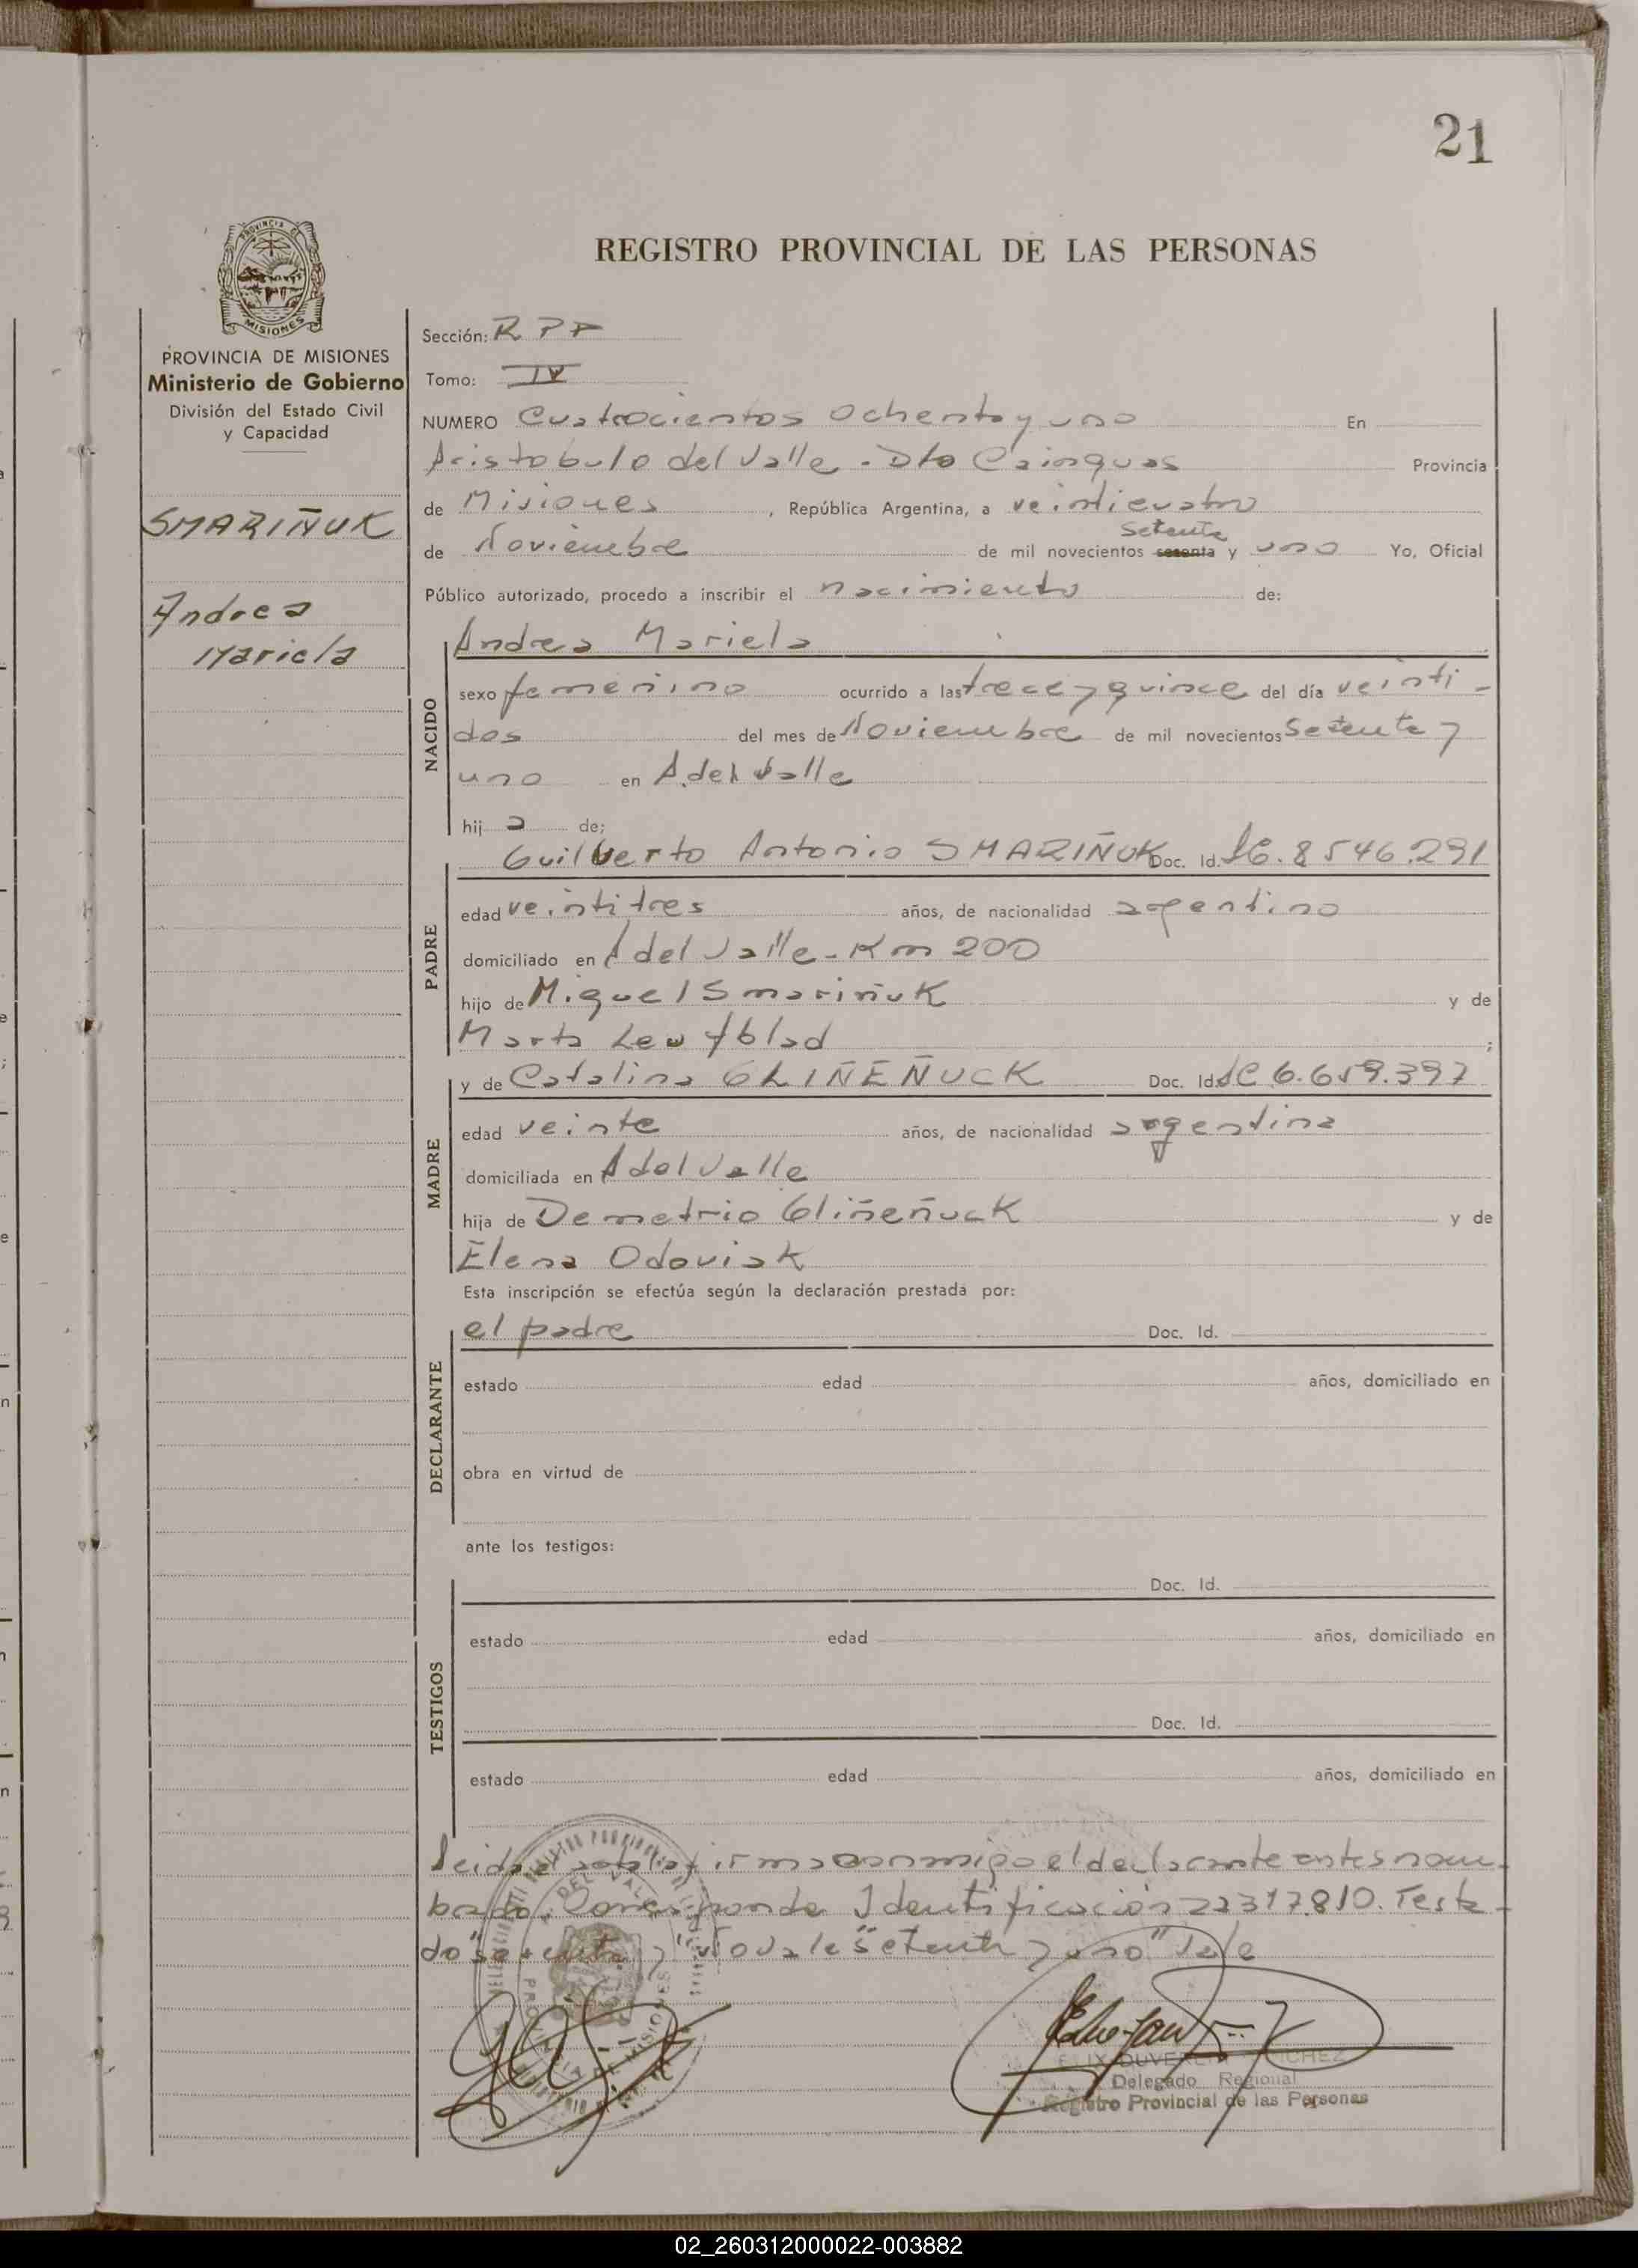 21
REGISTRO PROVINCIAL DE LAS PERSONAS
PROVINCIA DE MISIONES
Ministerio de Gobierno
División del Estado Civil
y Capacidad
SMARIÑUK
Andrea
Mariela
Sección: R P P
Tomo: IV
NUMERO Cuatrocientos ochenta y uno En
Aristobulo del Valle - Dto Cainguas Provincia
de Misiones, República Argentina, a veinticuatro
setenta
de Noviembre de mil novecientos sesenta y uno Yo, Oficial
Público autorizado, procedo a inscribir el nacimiento de:
NACIDO
Andrea Mariela
sexo femenino ocurrido a las trece y quince del día veinti-
dos del mes de Noviembre de mil novecientos setenta y
uno en A. del Valle
hija de;
PADRE
Guilberto Antonio SMARIÑUK Doc. Id. 8.546.291
edad veintitres años, de nacionalidad argentino
domiciliado en A del Valle - Km 200
hijo de Miguel Smariñuk y de
Marta ;
MADRE
y de Catalina GLIÑEÑUCK Doc. Id. LC 6.659.397
edad veinte años, de nacionalidad argentina
domiciliada en A del Valle
hija de Demetrio Gliñeñuck y de
Elena Odoviak
Esta inscripción se efectúa según la declaración prestada por:
DECLARANTE
el padre Doc. Id.
estado edad años, domiciliado en
obra en virtud de
ante los testigos:
TESTIGOS
Doc. Id.
estado edad años, domiciliado en
Doc. Id.
estado edad años, domiciliado en
Leida el acta la firma conmigo el declarante antes nom-
brado. Corresponde Identificación 22317.810. Testa-
do "sesenta y" No vale "setenta y uno" Vale
Delegado Regional
Registro Provincial de las Personas
02_260312000022-003882